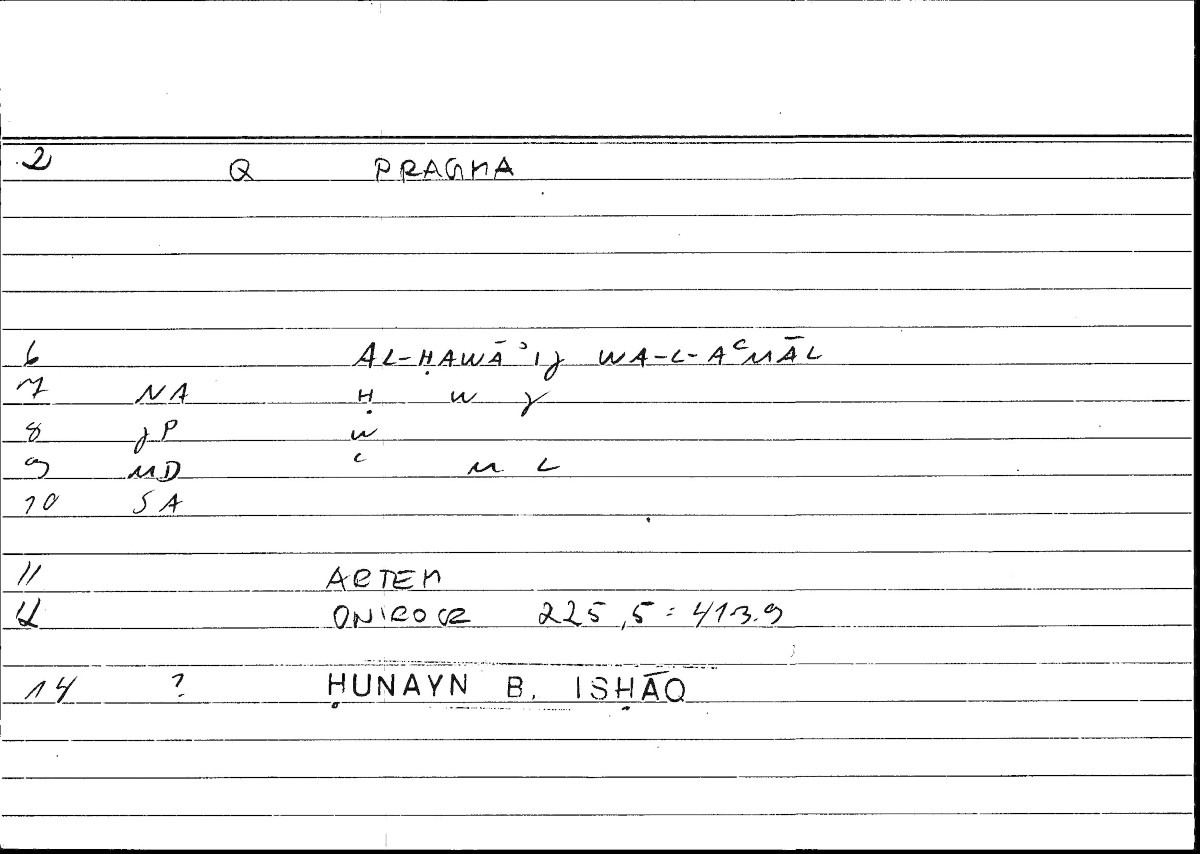 2 Q PRAGMA
6 AL-ḤAWĀʾIJ WA-L-AʿMĀL
7 NA Ḥ W J
8 JP W
9 MD ʿ M L
10 SA
11 ARTEM
12 ONIROCR 225,5 = 413.9
14 ? ḤUNAYN B. ISḤĀQ